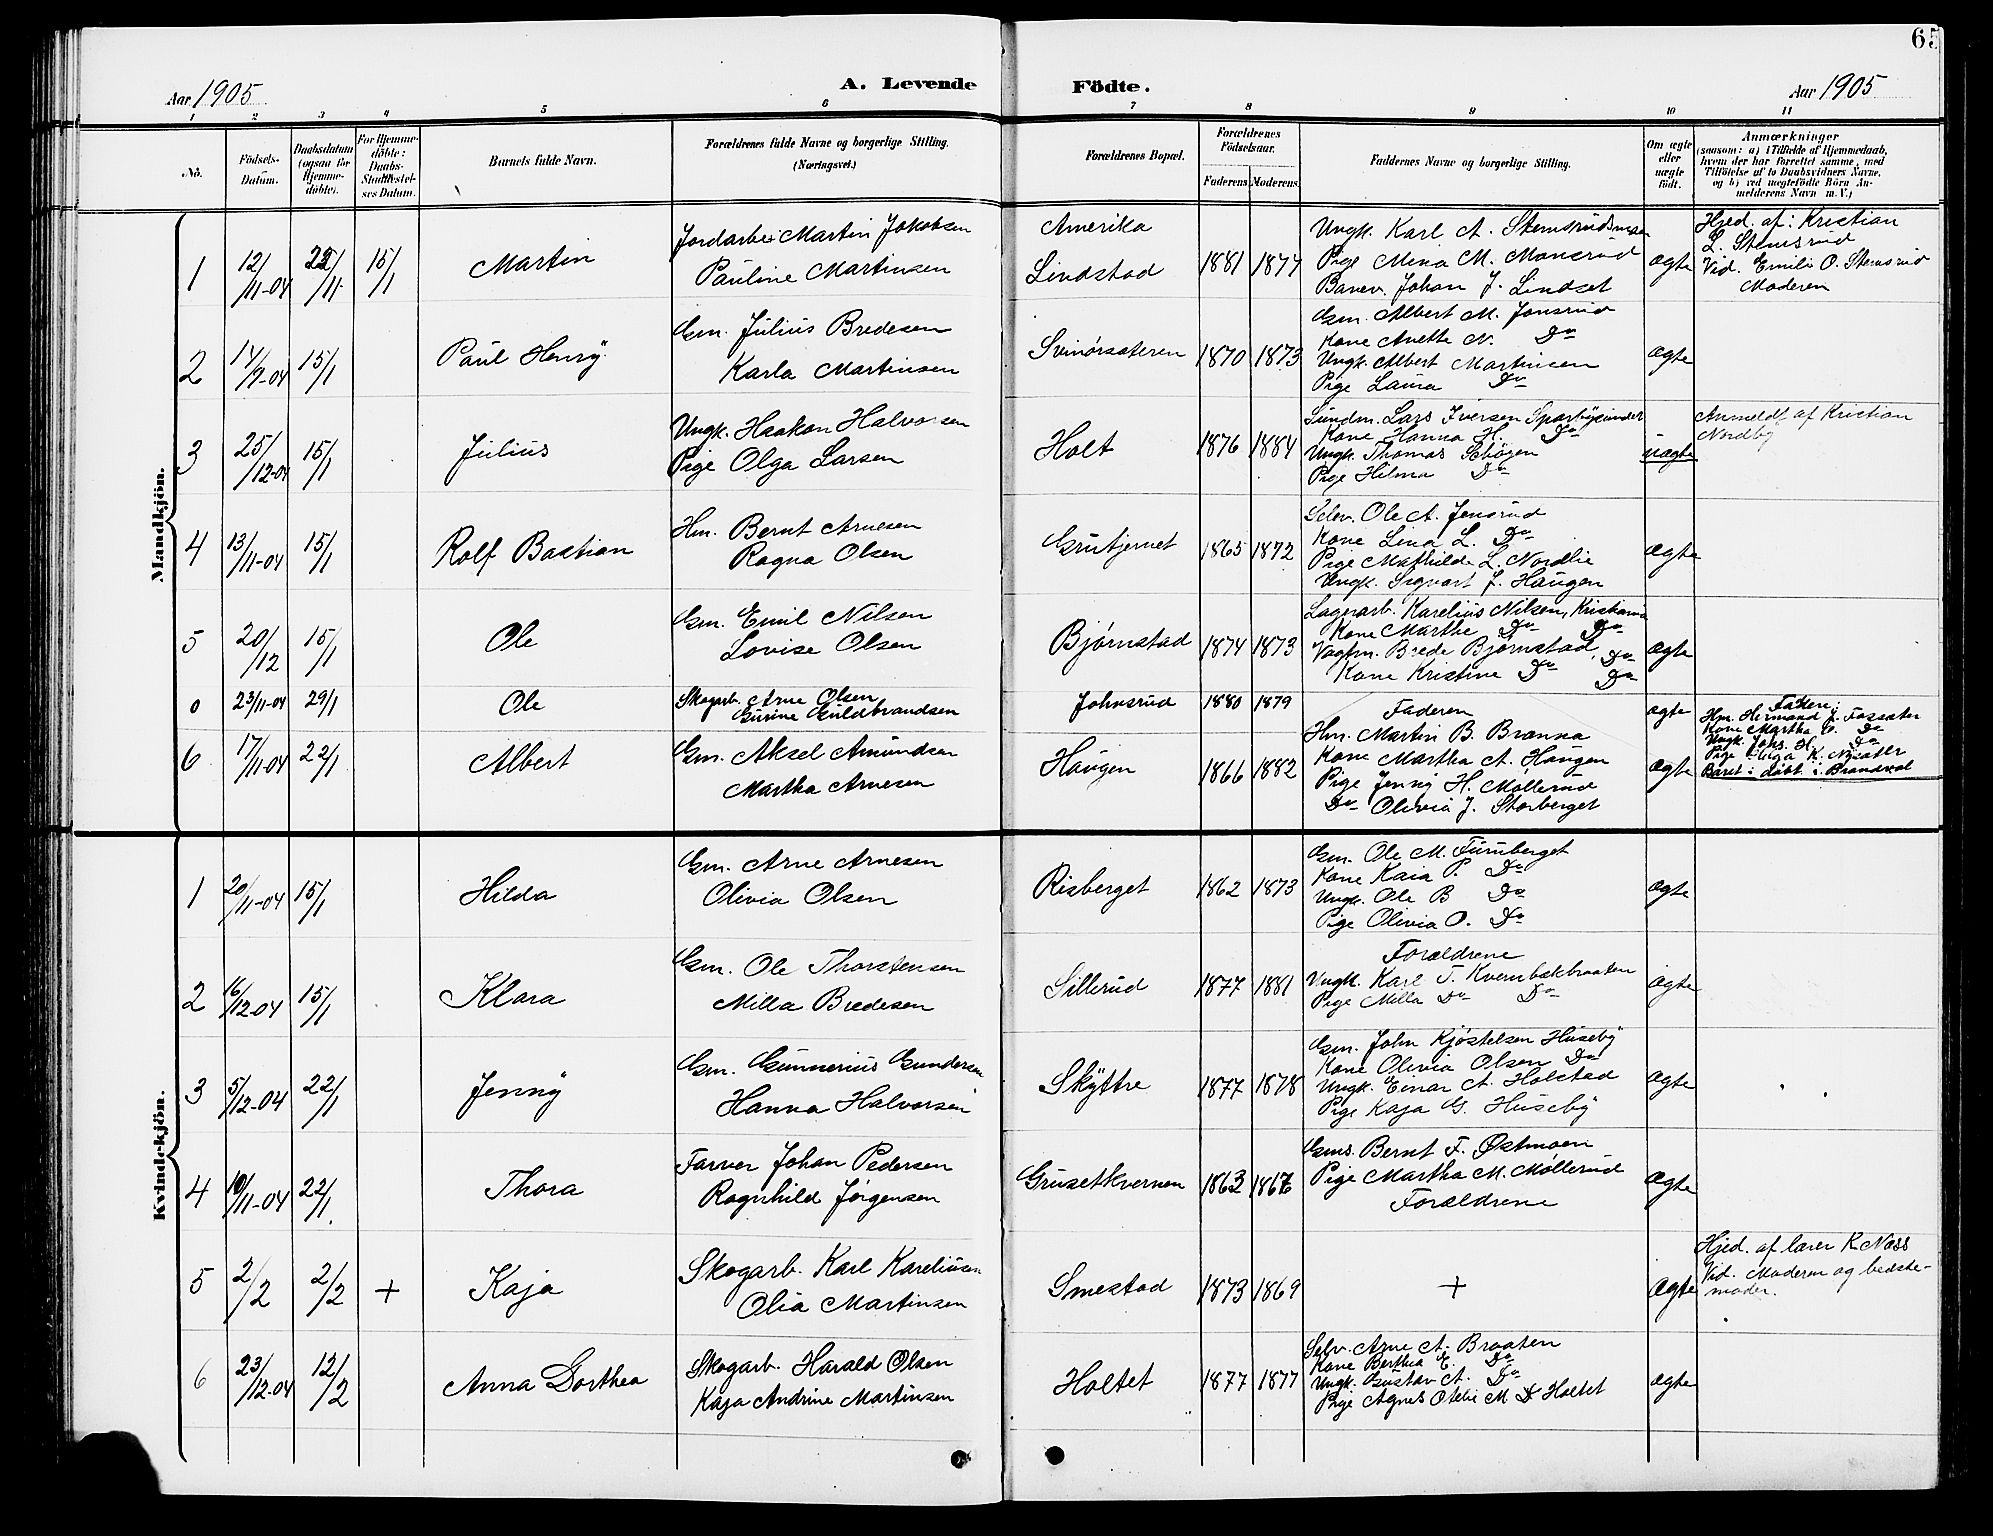 65
Aar 1905
A. Levende Födte.
Aar 1905
1 2 3 4 5 6 7 8 9 10 11
No.
Födsels-Datum.
Daabsdatum (ogsaa for Hjemme-döbte).
For Hjemme-döbte: Daabs-Stadfæstelses Datum.
Barnets fulde Navn.
Forældrenes fulde Navne og borgerlige Stilling. (Næringsvei.)
Forældrenes Bopæl.
Forældrenes Födselsaar.
Faderens Moderens
Faddernes Navne og borgerlige Stilling.
Om ægte eller uægte födt.
Anmærkninger
(saasom: a) i Tilfælde af Hjemmedaab, hvem der har forrettet samme, med Tilföielse af to Daabsvidners Navne, og b) ved uægtefödte Börn Anmelderens Navn m. V.)
Mandkjön.
1 12/11-04 22/11 15/1 Martin
Jordarbei Martin Jakobsen
Pauline Martinsen
Amerika
Lindstad
1881 1877
Ungk. Karl A. Stemsrudsmoen
Pige Mina M. Monsrud
Banev. Johan J. Lindset
ægte
Hjed. af: Kristian
L. Stemsrud
Vid. Emilie O. Stemsrud
Moderen
2 14/9-04 15/1 Paul Henrÿ
Gm. Julius Bredesen
Karla Martinsen
Svinørsæteren
1870 1873
Gm. Albert M. Jonsrud
Kone Anette N. Do
Ungk. Albert Martinsen
Pige Laura Do
ægte
3 25/12-04 15/1 Julius
Ungk. Haakon Halvorsen
Pige Olga Larsen
Holt
1876 1884
Lars Iversen
Kone Hanna H. Do
Ungk. Thomas
Pige Hilma Do
uægte
Anmeldt af Kristian
Nordby
4 13/11-04 15/1 Rolf Bastian
Hm. Bernt Arnesen
Ragna Olsen
Grutjernet
1865 1872
Selv. Ole A. Jensrud
Kone Lina L. Do
Pige Mathilde L. Nordlie
Ungk. Sigvart J. Haugen
ægte
5 20/12 15/1 Ole
Gm. Emil Nilsen
Lovise Olsen
Bjørnstad
1874 1873
Lagerarb. Karelius Nilsen, Kristiania
Kone Marthe Do Do
Vagtm. Brede Bjørnstad, Do
Kone Kristine Do Do
ægte
0 23/11-04 29/1 Ole
Skogarb. Arne Olsen
Gurine Guldbrandsen
Johnsrud
1880 1879
Faderen
ægte
Faddere:
Hm. Hermand J. Fossæter
Kone Martha E. Do
Ungk. Johs. H. Do
Pige Olga K. Nysæter
Baret i døbt i Brandval
6 17/11-04 22/1 Albert
Gm. Aksel Amundsen
Martha Arnesen
Haugen
1866 1882
Hm. Martin B. Branna
Kone Martha A. Haugen
Pige Jenny H. Møllerud
Do Olivia J. Storberget
ægte
Kvindekjön.
1 20/11-04 15/1 Hilda
Gm. Arne Arnesen
Olivia Olsen
Risberget
1862 1873
Gm. Ole M. Furuberget
Kone Kaia P. Do
Ungk. Ole B Do
Pige Olivia O. Do
ægte
2 16/12-04 15/1 Klara
Gm. Ole Thorstensen
Milla Bredesen
Sillerud
1877 1881
Forældrene
Ungk. Karl T. Kvernbækbraaten
Pige Milla Do Do
ægte
3 5/12-04 22/1 Jennÿ
Gm. Gunnerius Gundersen
Hanna Halvorsen
Skÿttre
1877 1878
Gm. John Kjøstelsen Husebÿ
Kone Olivia Olsen Do
Ungk. Einar A. Holstad
Pige Kaja G. Husebÿ
ægte
4 10/11-04 22/1 Thora
Farver Johan Pedersen
Ragnhild Jørgensen
Grusetkvernen
1863 1867
Gms. Bernt F. Østmoen
Pige Martha M. Møllerud
Forældrene
ægte
5 2/2 2/2 + Kaja
Skogarb. Karl Kareliusen
Olia Martinsen
Smestad
1873 1869
+
ægte
Hjed. af lærer K. Næss
Vid. Moderen og bedste-
moder.
6 23/12-04 12/2 Anna Dorthea
Skogarb. Harald Olsen
Kaja Andrine Martinsen
Holtet
1877 1877
Selv. Arne A. Braaten
Kone Berthea E. Do
Ungk. Gustav A. Do
Pige Agnes Otelie M Do Holtet
ægte